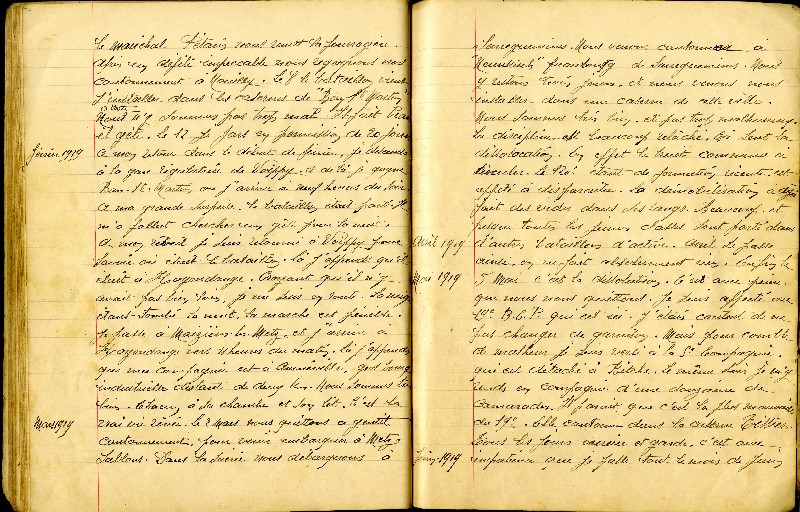 le Maréchal Pétain nous remet la fourragère.
Après un défilé impeccable nous regagnons nos
cantonnement à Nouilly. Le 8 le bataillon vient
s'installer dans les casernes de "Ban St Martin"
Nous n'y sommes pas trop mal. Il fait beau
et gèle. Le 12 je pars en permission de 20 jours
février 1919
à mon retour dans le début de février, je descends
à la gare régulatrice de Woippy et de là je gagne
Ban-St-Martin, où j'arrive à neuf heures du soir
à ma grande surprise le bataillon était parti. Il
m'a fallut chercher un gîte pour la nuit.
Au réveil je suis retourné à Woippy pour
savoir où était le bataillon. Là j'apprends qu'il
était à Hagondange. Croyant qu'il n'y
avait pas bien loin, je me suis en route. La neige
étant tombé la nuit, la marche est pénible.
Je passe à Maizières-les-Metz, et j'arrive à
Hagondange vers 11 heures du matin. Là j'apprends
que ma compagnie est à gros bourg
industriel distant de deux km. Nous sommes très
bien. Chacun à sa chambre et son lit. C'est la
vrai vie rêvée. Le 2 Mars nous quittons ce gentil
Mars 1919
cantonnement, pour venir embarquer à Metz-
Sablons. Dans la soirée nous débarquons à
Sarreguemines. Nous venons cantonner à
"Neunkirch" faubourg de Sarreguemines. Nous
y restons trois jours, et nous venons nous
installer dans une caserne de cette ville.
Nous sommes très bien, et pas trop malheureux.
La discipline est beaucoup relâché, ici sent la
dissolution. En effet le bruit commence à
circuler. Le étant de formation récente est
appelé à disparaître. La démobilisation a déjà
fait des vides dans les rangs. Beaucoup et
presque toutes les jeunes classes sont partis dans
Avril 1919
d'autres bataillons d'active. Avril se passe
ainsi, on ne fait absolument rien. Enfin le
Mai 1919
5 Mai c'est la dissolution. C'est avec peine
que nous nous quittons. Je suis affecté au
19e B.C.P. qui est ici. J'étais content de ne
pas changer de garnison. Mais pour comble
de malheur je suis versé à la 5e Compagnie
qui est détaché à Bitche. Le même soir je m'y
rends en compagnie d'une douzaine de
camarades. Il paraît que c'est la plus mauvaise
du 19e. Elle cantonne dans la caserne
Tous les jours exercice et garde, c'est avec
Juin 1919
impatience que je passe tout le mois de Juin